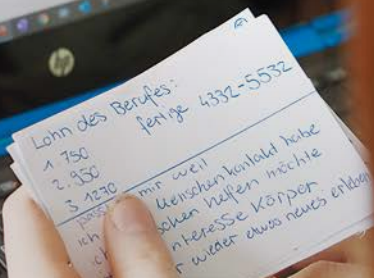 hp
Lohn des Berufes:
1. 750 fertige 4332-5532
2. 950
3 1270
mir weil
ich Menschenkontakt habe
helfen möchte
Interesse Körper
wieder etwas neues erleben